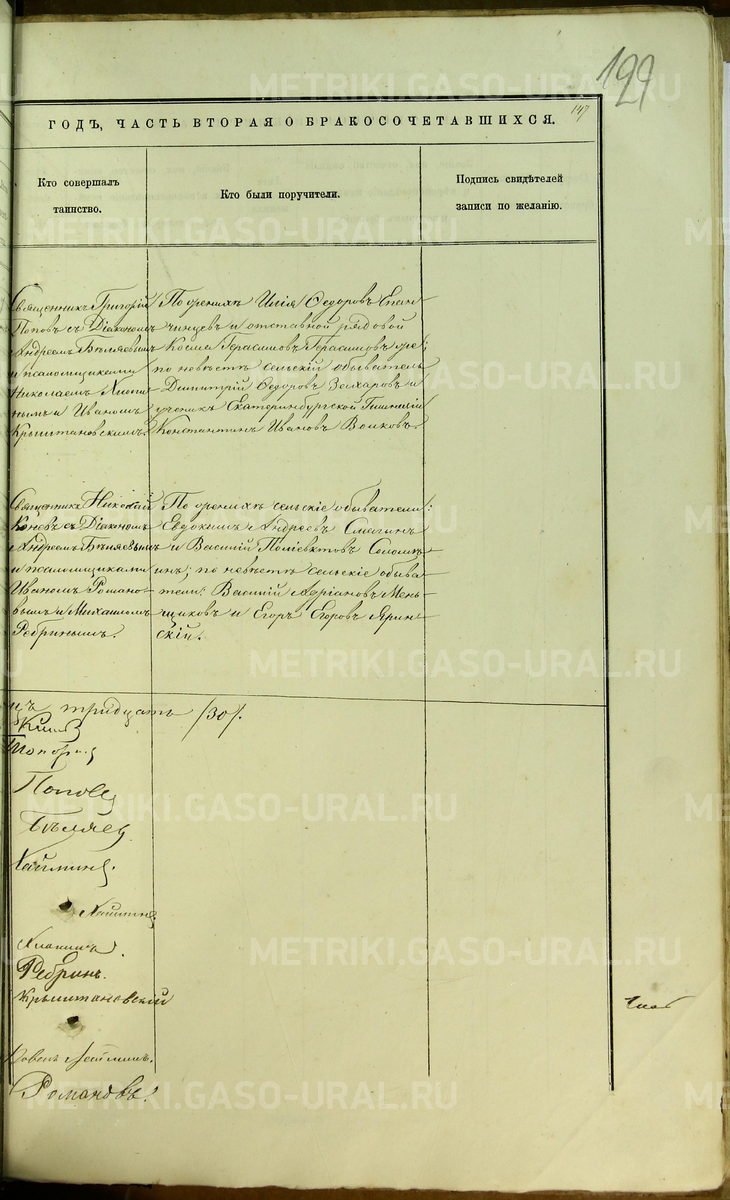 129
147
ГОДЪ, ЧАСТЬ ВТОРАЯ О БРАКОСОЧЕТАВШИХСЯ.
Кто совершалъ
таинство.
Кто были поручители.
Подпись свидѣтелей
записи по желанію.
Священникъ Григорій
Поповъ съ Діакономъ
Андреемъ Бѣляевымъ
и псаломщиками
Николаемъ
нымъ и Иваномъ
Крыштановскимъ.
По женихѣ Илія Ѳедоровъ Епан-
чинцевъ и отставной рядовой
Косма Герасимовъ Герасимовъ же;
по невѣстѣ сельскій обыватель
Димитрій Ѳедоровъ Захаровъ и
ученикъ Екатеринбургской Гимназіи
Константинъ Ивановъ Волковъ.
Священникъ Николай
Коневъ съ Діакономъ
Андреемъ Бѣляевымъ
и псаломщиками
Иваномъ Романо-
вымъ и Михаиломъ
Ребринымъ.
По женихѣ сельскіе обыватели:
Евдокимъ Андреевъ Смагинъ
и Василій Поліевктовъ Соломѣ-
инъ; по невѣстѣ сельскіе обыва-
тели: Василій Адріановъ Мень-
щиковъ и Егоръ Егоровъ Ярин-
скій.
цъ тридцать /30/.
Поповъ
Бѣляевъ
Ребринъ.
Крыштановскій
Романовъ.
METRIKI.GASO-URAL.RU